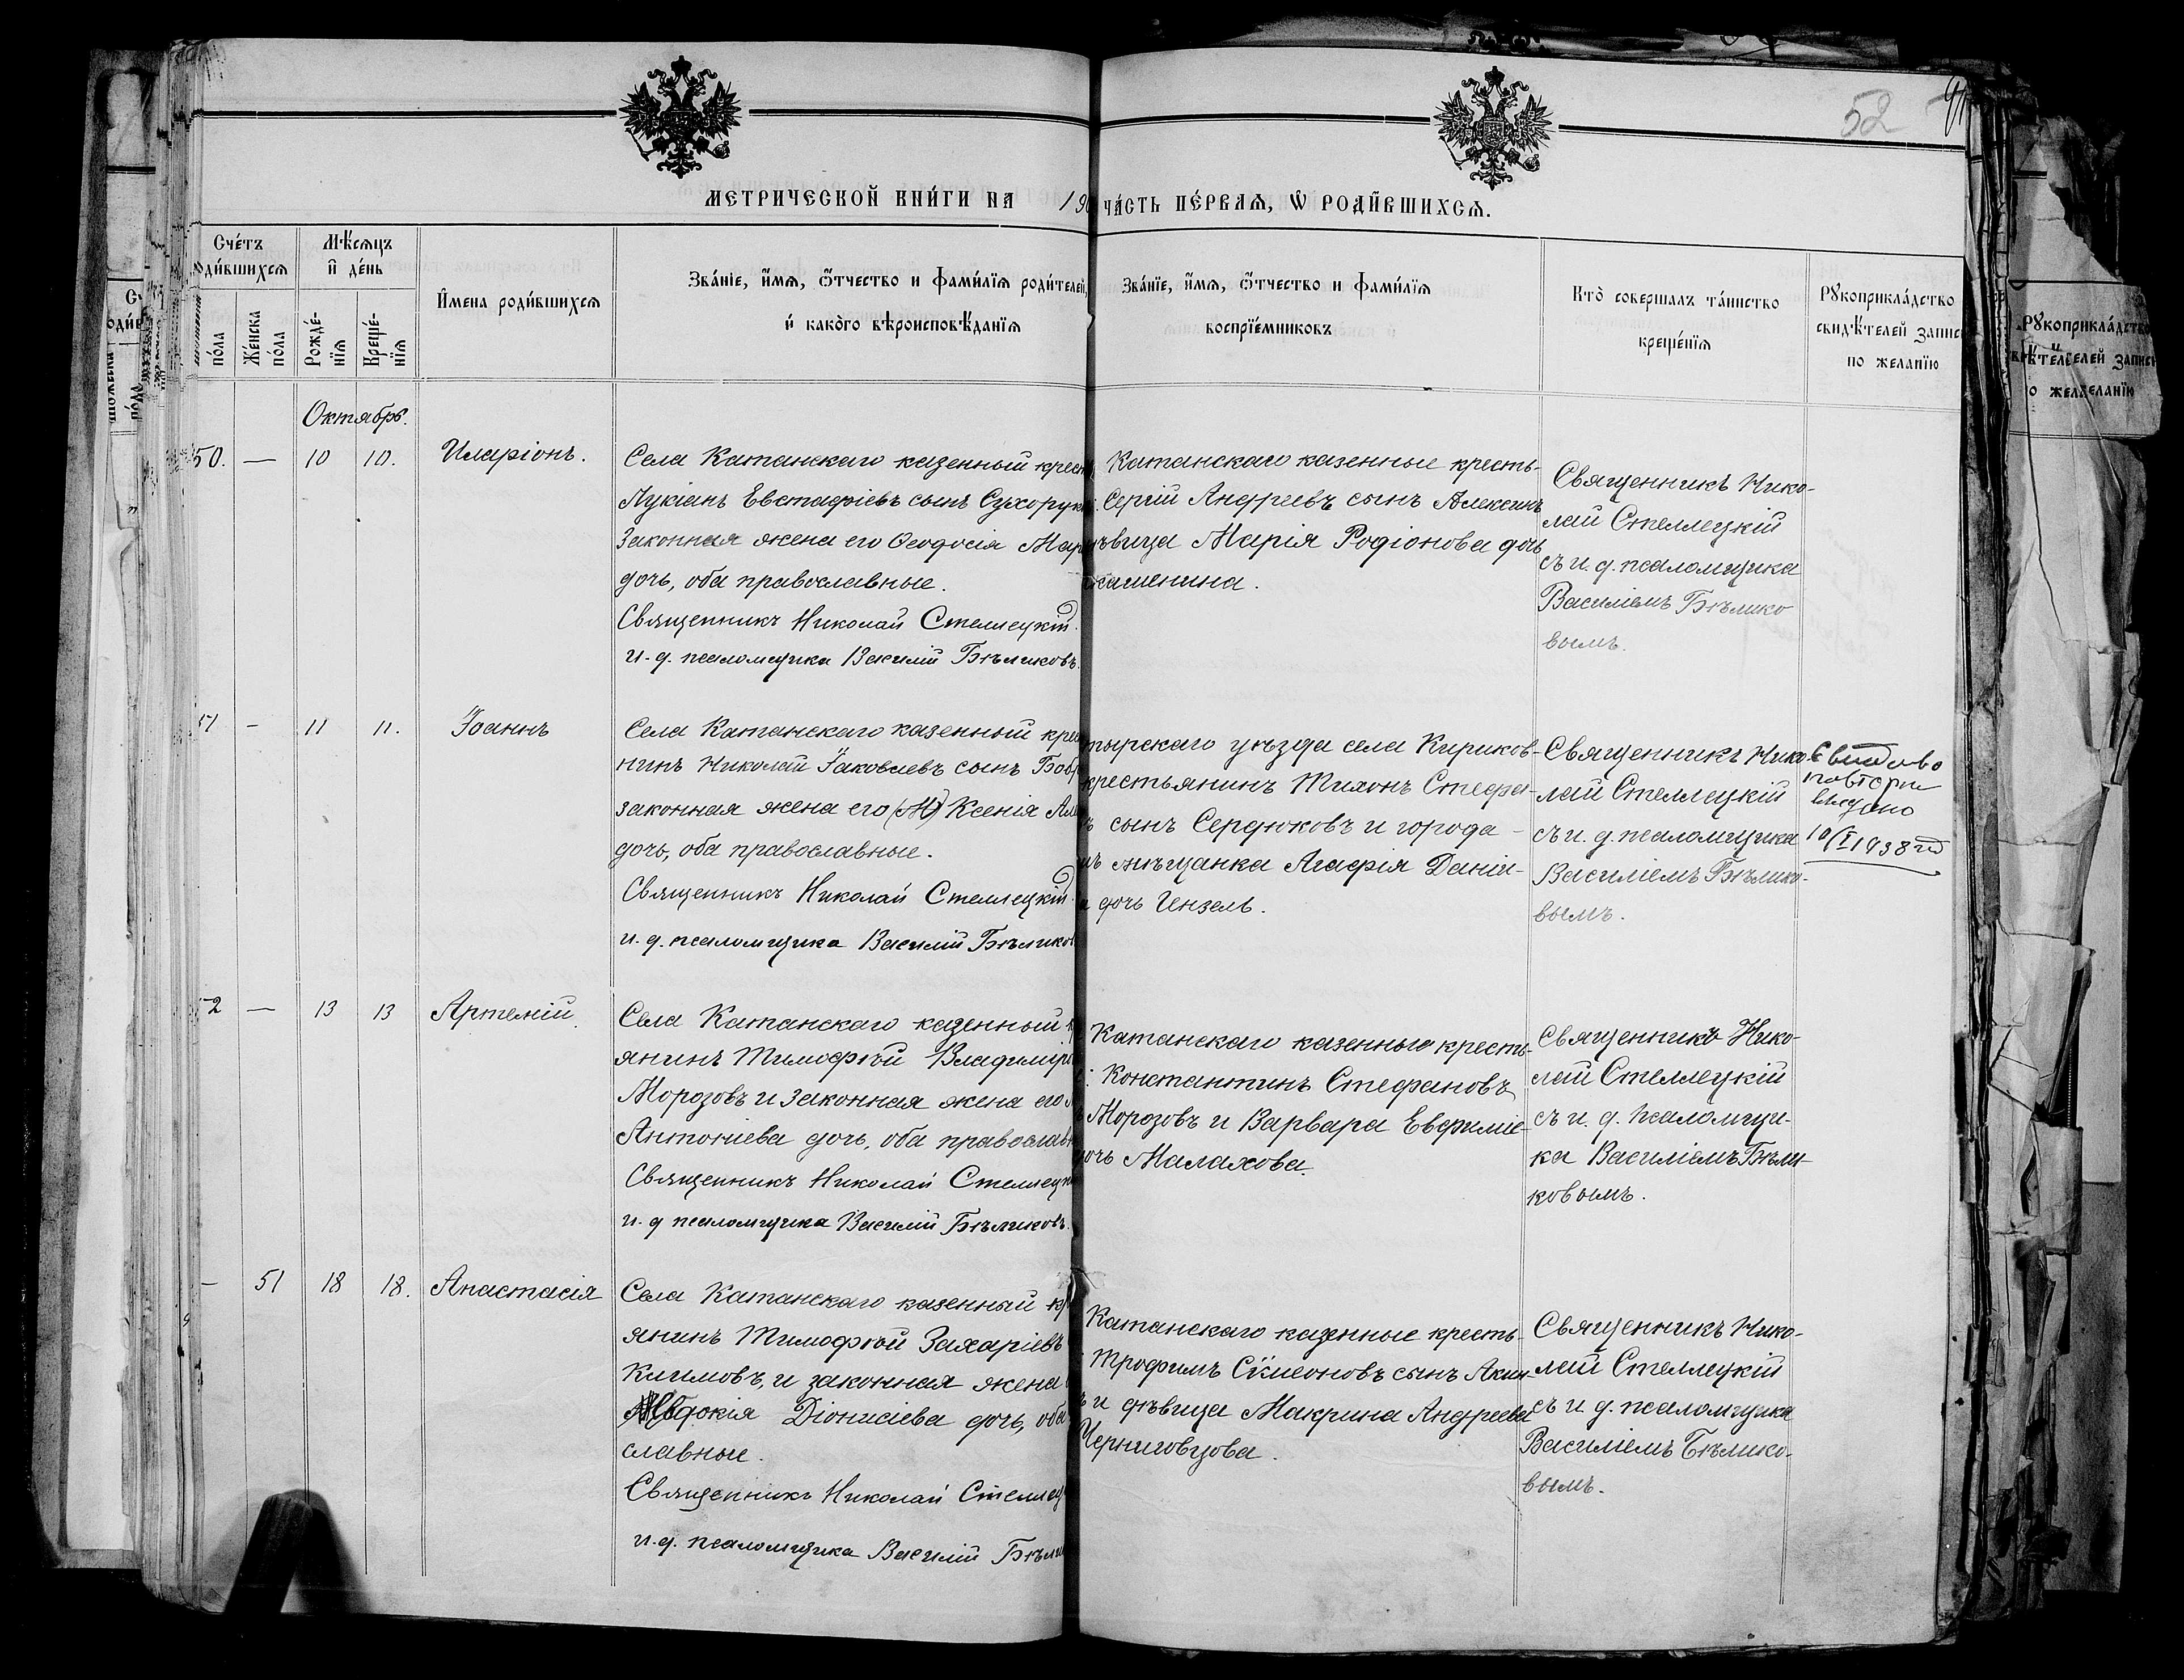 52
МЕТРИЧЕСКОЙ КНИ́ГИ НА 190
ЧА́СТЬ ПЕ́РВАѦ, Ѡ РОДИ́ВШИХСѦ.
Сче́тъ
роди́вшихсѧ
Мѣ́сѧцъ
и҆ де́нь
И҆мена роди́вшихсѧ
Зва́нїе, и҆́мѧ, ѻ҆́тчество и фами́лїѧ роди́телей,
и҆ како́гѡ вѣроисповѣ́данїѧ
Зва́нїе, и҆́мѧ, ѻ҆́тчество и фами́лїѧ
воспрїе́мниковъ
Кто̀ совершалъ та́инство
креще́нїѧ
Рꙋкоприкла́дство
свидѣ́телей запис
по желанїю
по́ла
Же́нска
по́ла
Рожде́-
нїѧ
Креще́-
нїѧ
Октябрь.
50. — 10 10. Иларіонъ.
Села Катанскаго казенный крест
Лукіанъ Евстафіевъ сынъ Сухорук
Законная жена его Ѳеодосія Мар
дочь, оба православные.
Священникъ Николай Стеллецкій.
и. д. псаломщика Василій Бѣликовъ.
Катанскаго казенные кресть-
Сергій Андреевъ сынъ Алексин
ѣвица Марія Родіонова дочь
Священникъ Нико-
лай Стеллецкій
съ и. д. псаломщика
Василіемъ Бѣлико
вымъ.
51 - 11 11. Іоаннъ
Села Катанскаго казенный крес
нинъ Николай Іаковлевъ сынъ Бобр
законная жена его Ксенія Ал
дочь, оба православные.
Священникъ Николай Стеллецкій
и. д. псаломщика Василій Бѣликов
тырскаго уѣзда села Кириков-
крестьянинъ Тихонъ Стефа-
ъ сынъ Сердюковъ и города
мѣщанка Агафія Даніи-
а дочь Гензель.
Священникъ Нико-
лай Стеллецкій
съ и. д. псаломщика
Василіемъ Бѣлико-
вымъ.
повторн
выдано
10/I 1938
52 — 13 13 Артемій.
Села Катанскаго казенный к
янинъ Тимофѣй Владимір
Морозовъ и законная жена его
Антоніева дочь, оба православн
Священникъ Николай Стеллецк
и. д псаломщика Василій Бѣликовъ.
Катанскаго казенные кресть-
: Константинъ Стефановъ
Морозовъ и Варвара Евфиміе-
очь Малахова.
Священникъ Нико-
лай Стеллецкій
съ и. д. псаломщи-
ка Василіемъ Бѣли-
ковымъ.
— 51 18 18. Анастасія
Села Катанскаго казенный кр
янинъ Тимофѣй Захаріевъ
Климовъ, и законная жена
Евдокія Діонисіева дочь, оба
славные.
Священникъ Николай Стеллец
и. д. псаломщика Василій Бѣли
Катанскаго казенные кресть-
Трофимъ Сѵмеоновъ сынъ Аким
ъ и дѣвица Макрина Андреева
Черниговцова.
Священникъ Нико-
лай Стеллецкій
съ и д. псаломщика
Василіемъ Бѣлико-
вымъ.